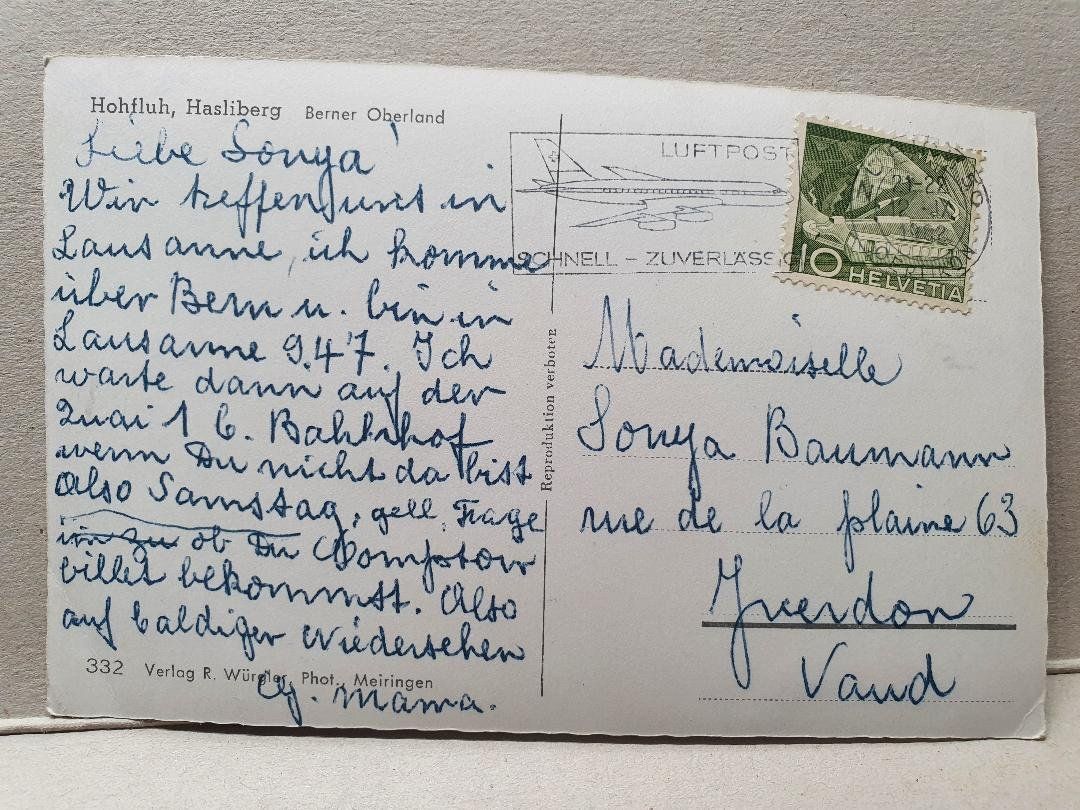 Hohfluh, Hasliberg Berner Oberland
Liebe Sonya!
Wir treffen uns in
Lausanne, ich komme
über Bern u. bin in
Lausanne 9.47. Ich
warte dann auf der
Quai 1 b. Bahnhof
wenn Du nicht da bist
Also Samstag, gell, Frage
ob Du
billet bekommst. Also
auf baldiges Wiedersehen
Mama.
332 Verlag R. Würgler, Phot., Meiringen
Reproduktion verboten
LUFTPOST
SCHNELL - ZUVERLÄSSIG
10 HELVETIA
Mademoiselle
Sonya Baumann
rue de la plaine 63
Yverdon
Vaud